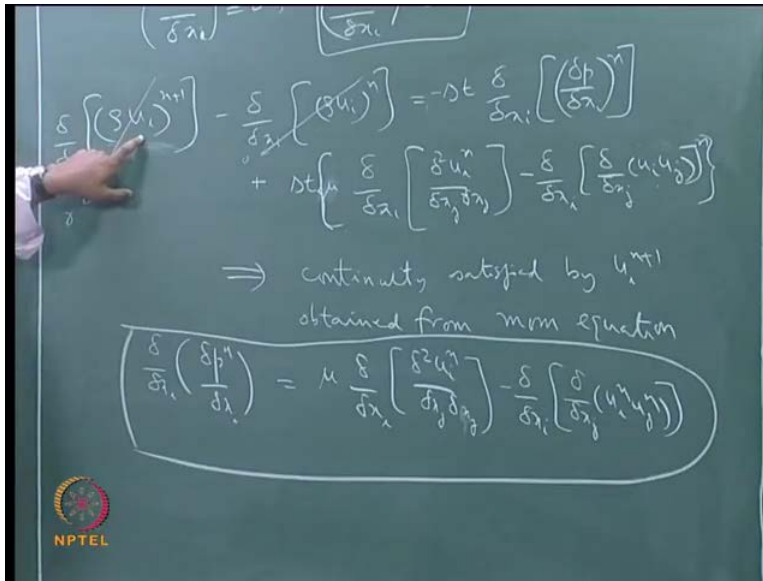 (δ/δxᵢ) = 0 , (δ/δxᵢ)
δ/δ [(ρuᵢ)ⁿ⁺¹] − δ/δxᵢ [(ρuᵢ)ⁿ] = −Δt δ/δxᵢ [(δp/δx)ⁿ]
+ Δt{μ δ/δxᵢ [δ²uᵢⁿ/δxⱼδxⱼ] − δ/δxᵢ [δ/δxⱼ (uᵢuⱼ)]ⁿ}
⇒ continuity satisfied by uᵢⁿ⁺¹
obtained from mom equation
δ/δxᵢ (δpⁿ/δxᵢ) = μ δ/δxᵢ [δ²uᵢⁿ/δxⱼδxⱼ] − δ/δxᵢ [δ/δxⱼ (uᵢⁿuⱼⁿ)]
NPTEL